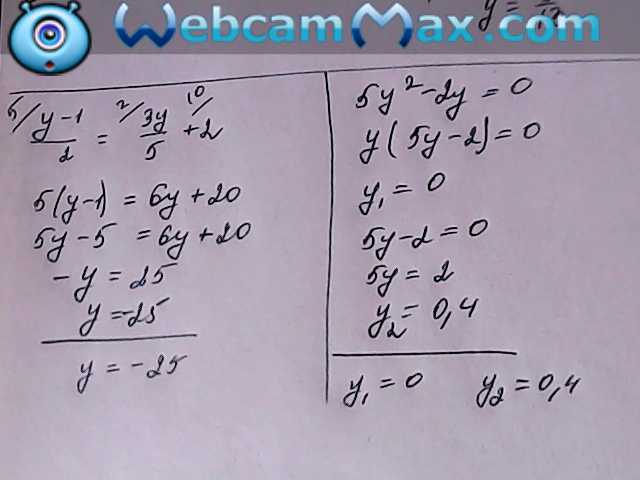 WebcamMax.com
y =
5/ y-1/2 = 2/ 3y/5 + 10/ 2
5(y-1) = 6y+20
5y-5 = 6y+20
-y = 25
y=-25
y = -25
5y²-2y = 0
y(5y-2)=0
y₁ = 0
5y-2=0
5y = 2
y₂= 0,4
y₁ = 0 y₂ = 0,4